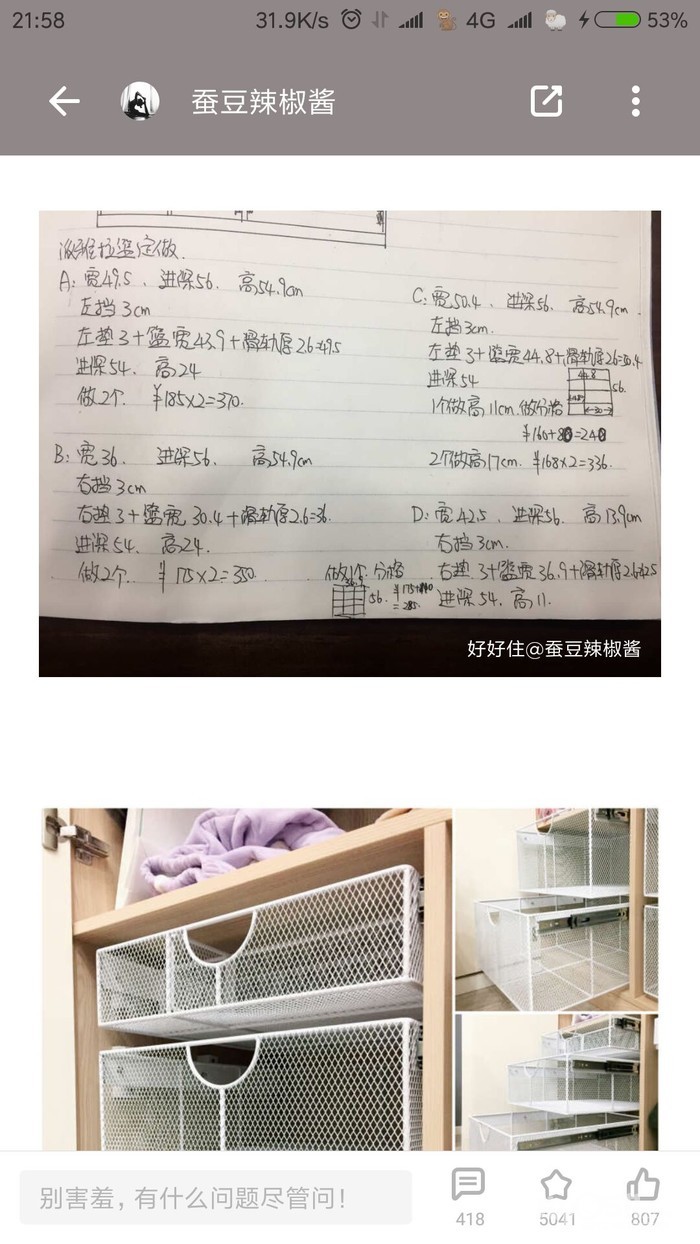 21:58
31.9K/s
4G
53%
蚕豆辣椒酱
派雅拉篮定做.
A: 宽49.5 、进深56. 高54.9cm
左挡3cm
左垫3+篮宽43.9+滑轨厚2.6=49.5
进深54. 高24
做2个. ¥185×2=370.
B: 宽36. 进深56. 高54.9cm
右挡3cm
右垫3+篮宽30.4+滑轨厚2.6=36.
进深54. 高24.
做2个. ¥175×2=350.
做1个.分格
56.
=285.
C: 宽50.4 、进深56. 高54.9cm.
左挡3cm.
左垫3+篮宽44.8+滑轨厚2.6=50.4
进深54
44.8
56.
30
1个做高11cm.做分格
¥160+80=240
2个做高17cm. ¥168×2=336.
D: 宽42.5 、进深56. 高13.9cm
右挡3cm.
右垫3+篮宽36.9+滑轨厚2.6=42.5
进深54. 高11.
好好住@蚕豆辣椒酱
别害羞，有什么问题尽管问！
418
5041
807